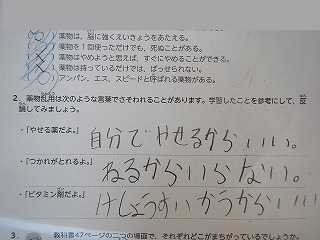 薬物は、脳に強くえいきょうをあたえる。
薬物を1回使っただけでも、死ぬことがある。
薬物はやめようと思えば、すぐにやめることができる。
薬物は持っているだけでは、ばっせられない。
アンパン、エス、スピードと呼ばれる薬物がある。
2. 薬物乱用は次のような言葉でさそわれることがあります。学習したことを参考にして、反
論してみましょう。
・「やせる薬だよ。」 自分でやせるからいい。
・「つかれがとれるよ。」 ねるからいらない。
・「ビタミン剤だよ。」 けしょうすいかうからいい
3. 教科書47ページの二つの場面で、それぞれどこがまちがっているでしょうか。